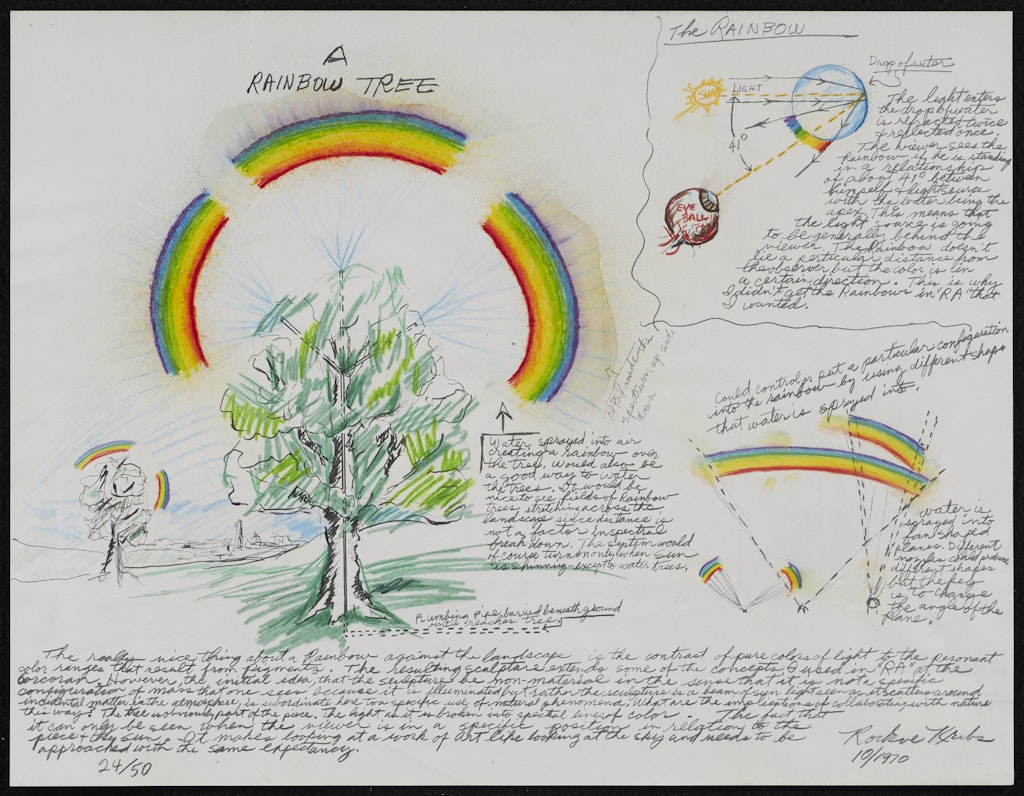 A
RAINBOW TREE
The RAINBOW
Drop of water
SUN
LIGHT
41°
EYE
BALL
The light enters
the drop of water
is refracted twice
& reflected once.
The viewer sees the
Rainbow if he is standing
in a relationship
of about 41° between
himself & light source
with the water being the
apex. This means that
the light source is going
to be generally behind the
viewer. The Rainbow doesn't
lie a perticular distance from
the observer but the color is in
a certain direction. This is why
I didn't get the Rainbows in "RA" that
I wanted.
made the
spectrum up side
down
Could control or put a particular configuration
into the rainbow by using different shaps
that water is sprayed into.
Water, sprayed into air
creating a rainbow over
the tree, would also be
a good way to water
the trees. It would be
nice to see fields of Rainbow
trees stretching across the
landscape since distance is
not a factor in spectral
break down. The system would
of course turn on only when sun
is shinning except to water trees.
Water is
sprayed into
fan shaped
planes. Different
nozzles could produce
different shapes
but the key
is to change
the angle of the
plane.
Plumbing pipe burried beneath ground
until reaches tree
The really nice thing about a Rainbow against the landscape is the contrast of pure colors of light to the resonant
color ranges that result from pigments. The resulting sculpture extends some of the concepts I used in "RA" at the
Corcoran. However, the initial idea, that the sculpture be non-material in the sense that it is not a specific
configuration of mass that one sees because it is illuminated but rather the sculpture is a beam of sun light seen as it scatters around
incidental matter in the atmosphere, is subordinate here to a specific use of natural phenomena. What are the implications of collaborating with nature
this way? The tree is obviously part of the piece. The light as it is broken into spectral lines of color. The fact that
it can only be seen when the viewer is in a specific position in relation to the
piece & the sun. It makes looking at a work of art like looking at the sky and needs to be
approached with the same expectancy.
24/50
Rockne Krebs
10/1970